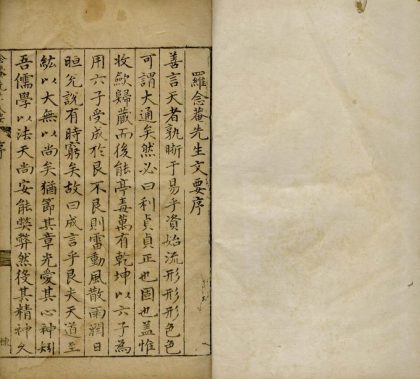 羅念菴先生文要序
善言天者孰晰于易乎資始流形形形色色
可謂大通矣然必曰利貞貞正也固也蓋惟
收歛歸藏而後能亭毒萬有乾坤以六子為
用六子受成於艮不艮則雷動風散雨潤日
晅兌說有時窮矣故曰成言乎艮夫天道至
紘以大無以尚矣猶節其章光愛其心神矧
吾儒學以法天尚安能㷼㷼然役其精神久
序